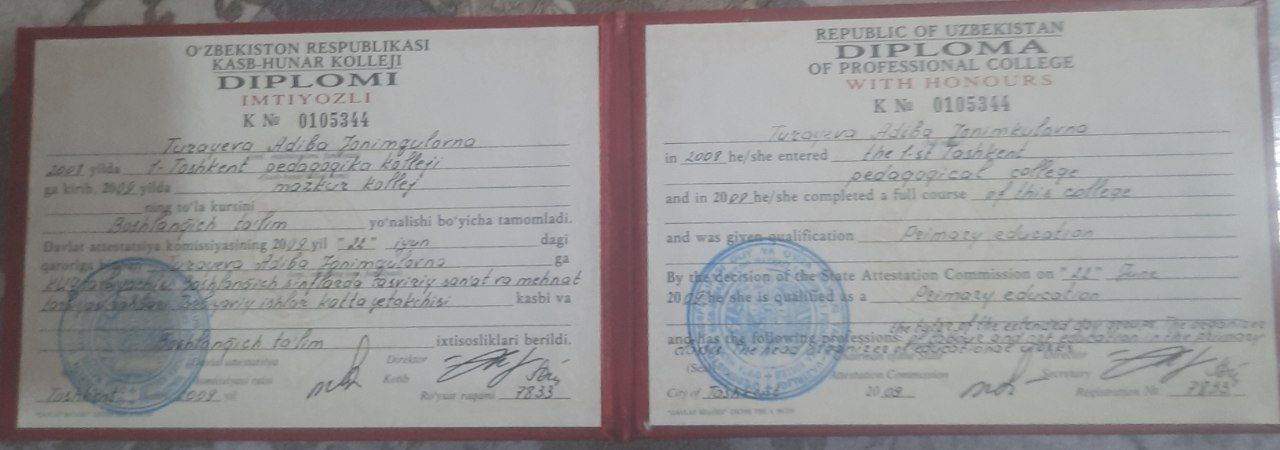 O‘ZBEKISTON RESPUBLIKASI
KASB-HUNAR KOLLEJI
DIPLOMI
IMTIYOZLI
K № 0105344
Turayeva Adiba Jonimqulovna
yilda 1-Toshkent pedagogika kolleji
ga kirib, 2009 yilda mazkur kollej
ning to‘la kursini
Boshlang‘ich ta'lim yo‘nalishi bo‘yicha tamomladi.
Davlat attestatsiya komissiyasining 2009 yil "22" iyun dagi
qaroriga Turayeva Adiba Jonimqulovna ga
boshlang‘ich sinflarda tasviriy san'at va mehnat
ishlar katta yetakchisi kasbi va
Boshlang‘ich ta'lim ixtisosliklari berildi.
Direktor
Kotib
Toshkent 2009 yil Ro‘yxat raqami 7833
REPUBLIC OF UZBEKISTAN
DIPLOMA
OF PROFESSIONAL COLLEGE
WITH HONOURS
K № 0105344
Turayeva Adiba Jonimkulovna
in he/she entered the 1-st Tashkent
pedagogical college
and in 2009 he/she completed a full course of this college
and was given qualification Primary education
By the decision of the State Attestation Commission on "22" June
2009 he she is qualified as a Primary education
the tutor of the extended day groups. The organizer
and has the following professions: of labour and art education in the primary
classes. The head organizer of educational works
Attestation Commission
Secretary
City of Tashkent 2009 Registration № 7833